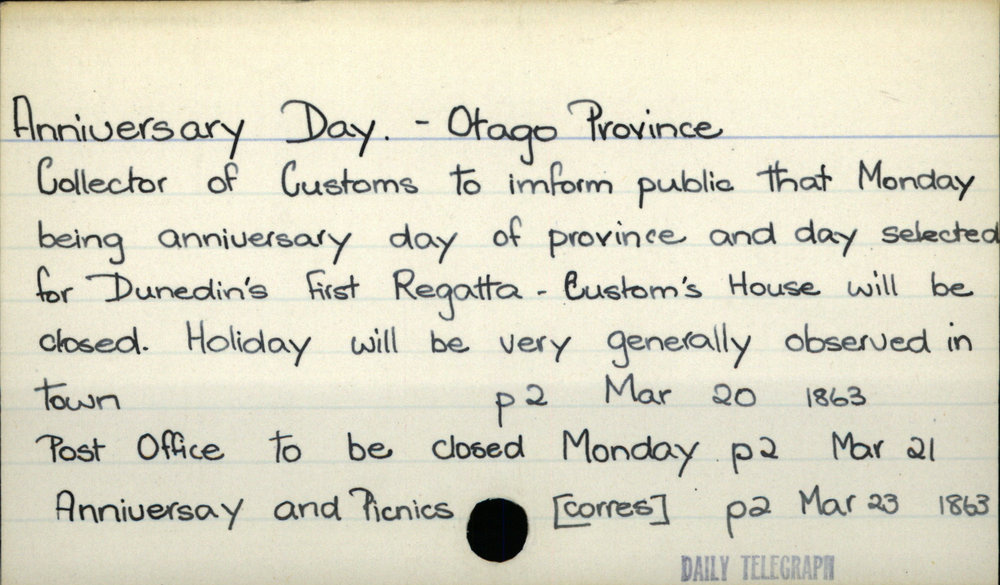 Anniversary Day. - Otago Province
Collector of Customs to imform public that Monday
being anniversary day of province and day selected
for Dunedin's first Regatta - Custom's House will be
closed. Holiday will be very generally observed in
town p2 Mar 20 1863
Post Office to be closed Monday p2 Mar 21
Anniversay and Picnics [corres] p2 Mar 23 1863
DAILY TELEGRAPH